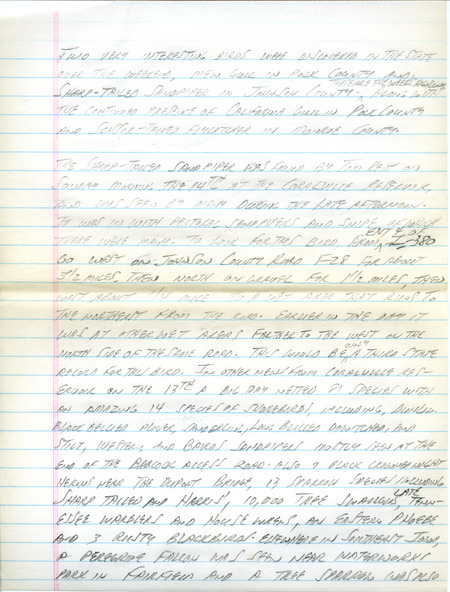 TWO VERY INTERESTING BIRDS WERE DISCOVERED IN THE STATE
OVER THE WEEKEND, MEW GULL IN POLK COUNTY AND
SHARP-TAILED SANDPIPER IN JOHNSON COUNTY. ALONG WITH
THE CONTINUED PRESENCE OF CALIFORNIA GULL IN POLK COUNTY
AND SCISSOR-TAILED FLYCATCHER IN MONROE COUNTY.
THE SHARP-TAILED SANDPIPER WAS FOUND BY TOM KENT ON
SUNDAY MORNING THE 14TH AT THE CORALVILLE RESERVOIR,
AND WAS SEEN BY MANY DURING THE LATE AFTERNOON.
IT WAS IN WITH PECTORAL SANDPIPERS AND SNIPE OF WHICH
THERE WERE MANY. TO LOOK FOR THIS BIRD FROM EXIT OF I-380
GO WEST ON JOHNSON COUNTY ROAD F28 FOR ABOUT
3 1/2 MILES, THEN NORTH ON GRAVEL FOR 1 1/2 MILES, THEN
WEST ABOUT 1/4 MILE TO A WET AREA THAT RUNS TO
THE NORTHEAST FROM THE ROAD. EARLIER IN THE DAY IT
WAS AT OTHER WET AREAS FARTHER TO THE WEST ON THE
NORTH SIDE OF THE SAME ROAD. THIS WOULD BE ONLY A THIRD STATE
RECORD FOR THIS BIRD. IN OTHER NEWS FROM CORALVILLE RES-
ERVOIR ON THE 13TH A BIG DAY NETTED 81 SPECIES WITH
AN AMAZING 14 SPECIES OF SHOREBIRDS, INCLUDING, DUNLIN,
BLACK BELLIED PLOVER, SANDERLING, LONG BILLED DOWITCHER, AND
STILT, WESTERN, AND BAIRDS SANDPIPERS MOSTLY SEEN AT THE
END OF THE BABCOCK ACCESS ROAD. ALSO 7 BLACK CROWNED NIGHT
HERONS NEAR THE DUPONT BRIDGE, 13 SPARROW SPECIES INCLUDING
SHARP TAILED AND HARRIS', 10,000 TREE SWALLOWS, LATE TENN-
ESSEE WARBLERS AND HOUSE WRENS, AN EASTERN PHOEBE
AND 3 RUSTY BLACKBIRDS. ELSEWHERE IN SOUTHEAST IOWA,
A PEREGRINE FALCON WAS SEEN NEAR WATERWORKS
PARK IN FAIRFIELD AND A TREE SPARROW WAS ALSO